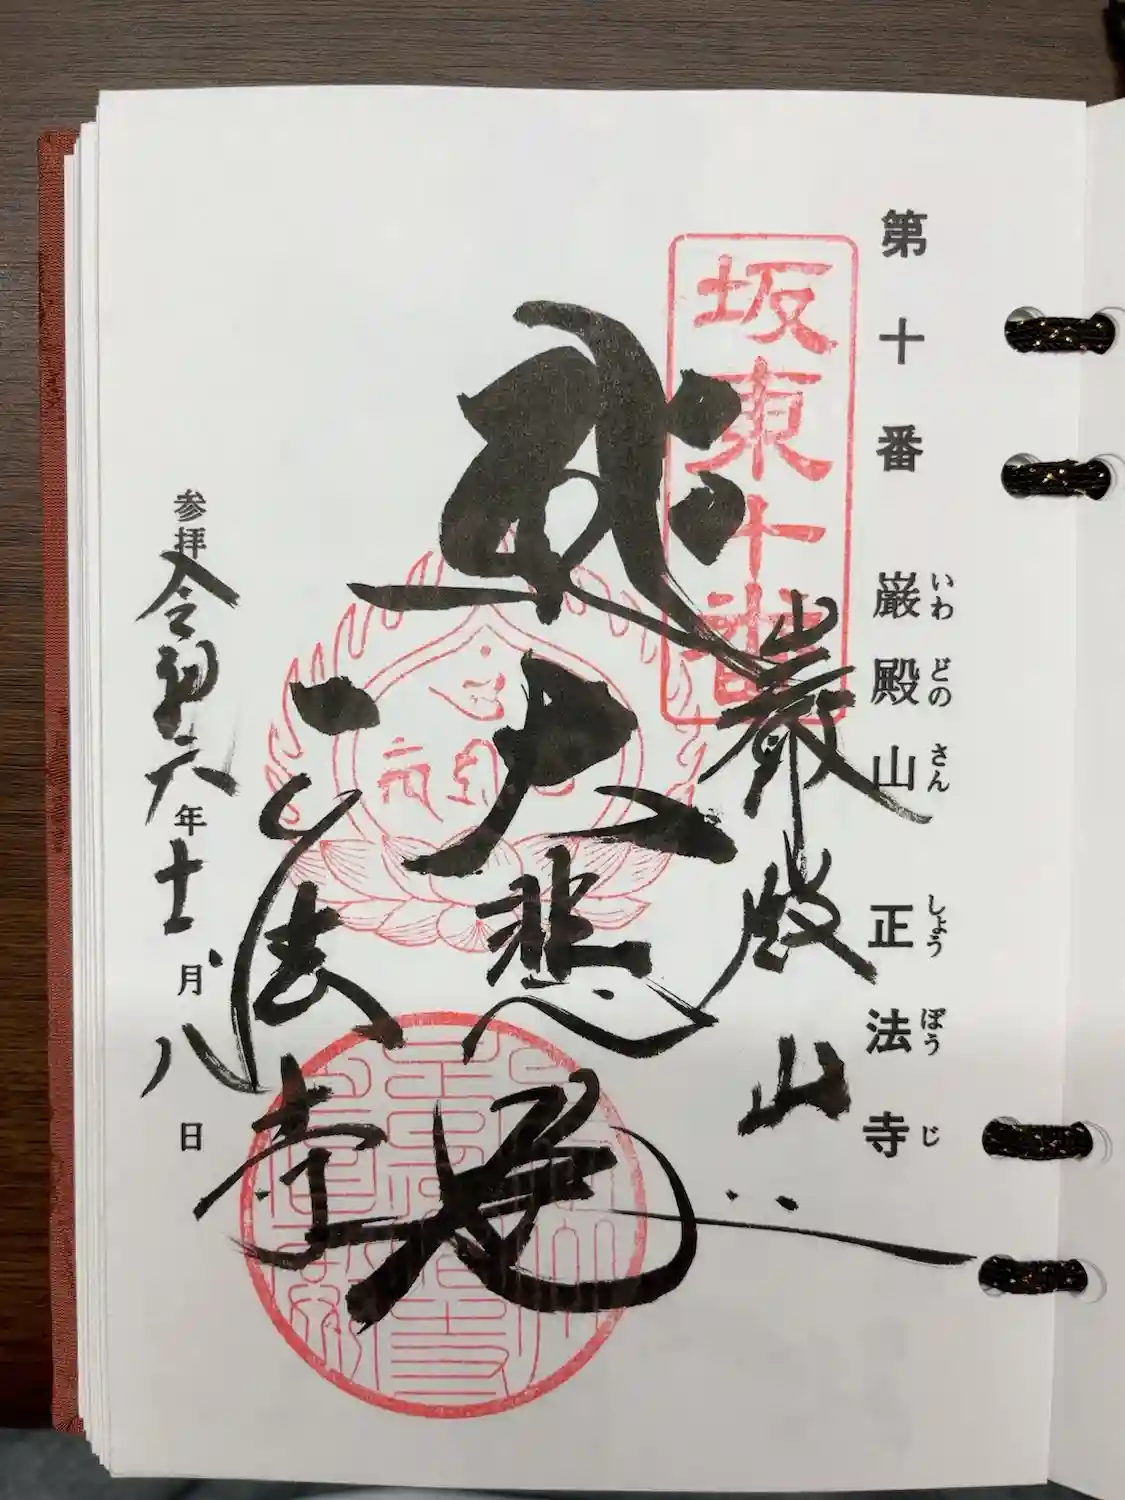 第十番 巌殿山 正法寺
いわ どの さん しょう ぼう じ
坂東十番
巌殿山
大悲殿
正法寺
参拝 令和六年十一月八日